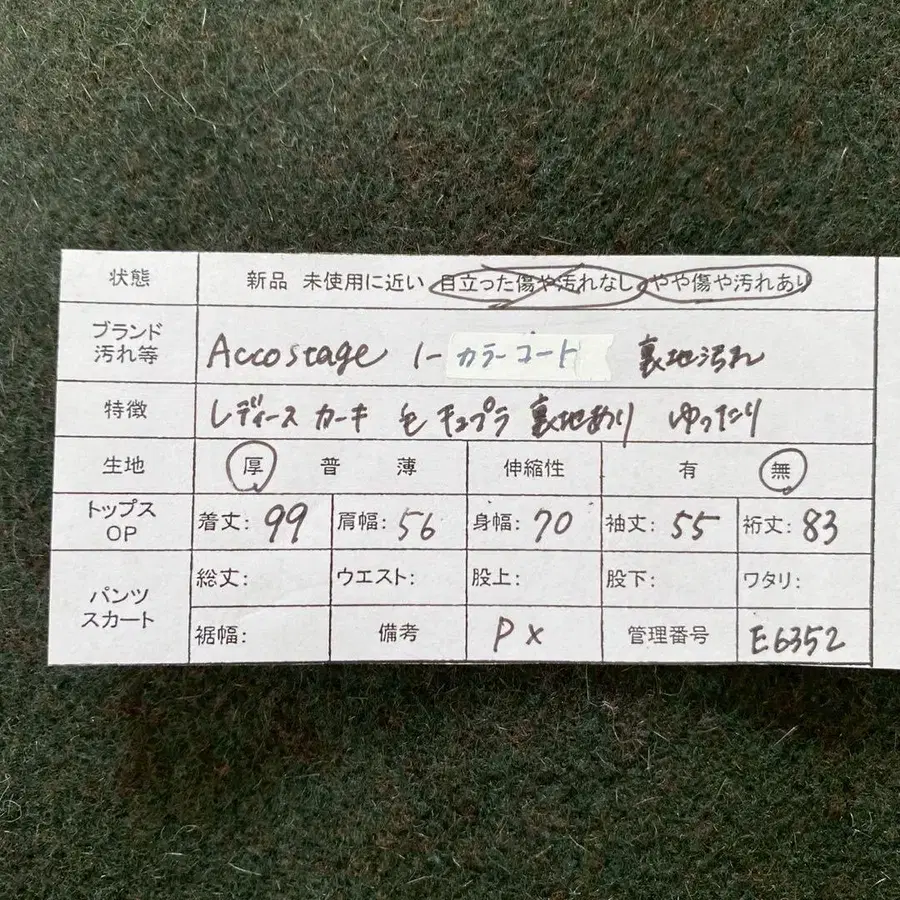 状態 新品 未使用に近い 目立った傷や汚れなし やや傷や汚れあり
ブランド
汚れ等 Accostage ノーカラーコート 裏地汚れ
特徴 レディース カーキ 毛 キュプラ 裏地あり ゆったり
生地 厚 普 薄 伸縮性 有 無
トップス
OP 着丈: 99 肩幅: 56 身幅: 70 袖丈: 55 裄丈: 83
パンツ
スカート 総丈: ウエスト: 股上: 股下: ワタリ:
裾幅: 備考 P× 管理番号 E6352